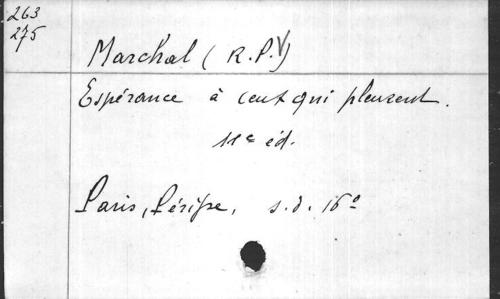 263
275
Marchal (R.P.V)
Espérance à ceux qui pleurent.
11e éd.
Paris, Périsse, s.d. 16°